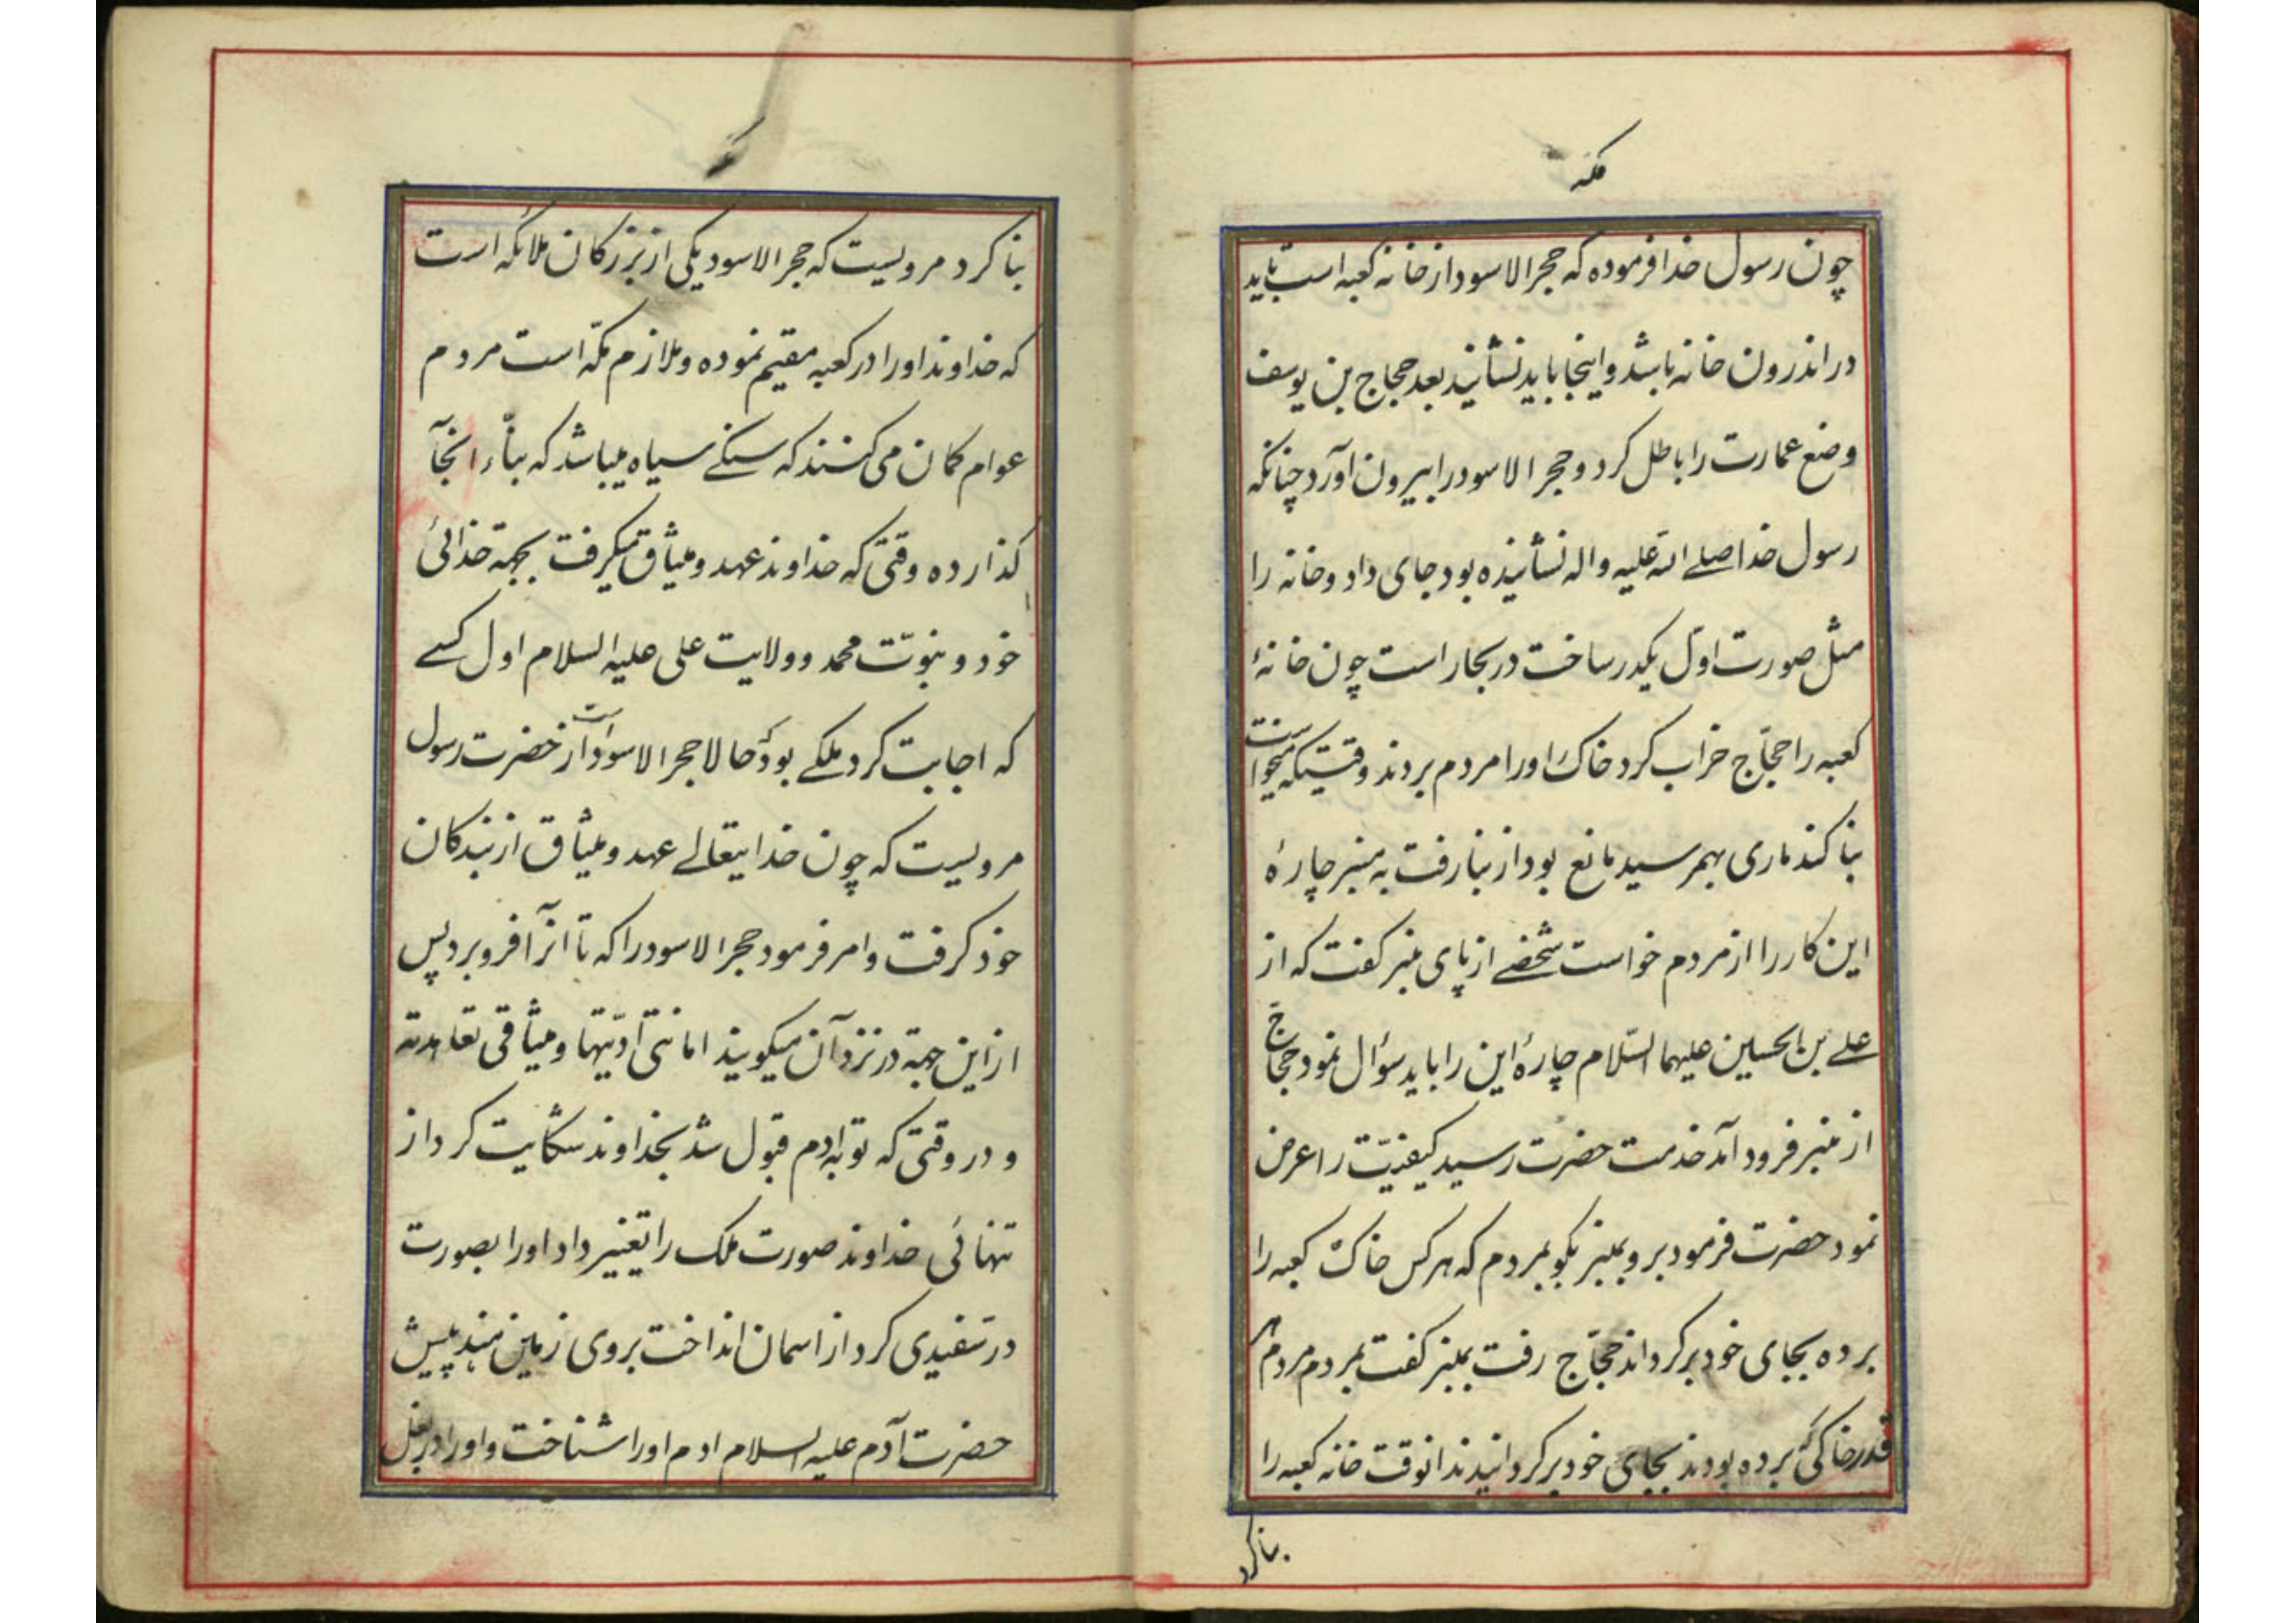 مکه
چون رسول خدا فرموده که حجر الاسود از خانه کعبه است باید
در اندرون خانه باشد و اینجا باید نشانید بعد حجاج بن یوسف
وضع عمارت را باطل کرد و حجر الاسود را بیرون آورد چنانکه
رسول خدا صلے الله علیه واله نشانیده بود جای داد و خانه را
مثل صورت اوّل یکدر ساخت در بحار است چون خانهٔ
کعبه را حجّاج خراب کرد خاک اورا مردم بردند وقتیکه میخواست
بنا کند ماری بهمرسید مانع بود از بنا رفت به منبر چارهٔ
این کار را از مردم خواست شخصے از پای منبر کفت که از
علے بن الحسین علیهما السّلام چارهٔ این را باید سؤال نمود حجاج
از منبر فرود آمد خدمت حضرت رسید کیفیّت را عرض
نمود حضرت فرمود برو بمنبر بکو بمردم که هر کس خاک کعبه را
برده بجای خود برکرداند حجّاج رفت بمنبر کفت بمردم مردم هر
قدر خاکی برده بودند بجای خود برکردانیدند انوقت خانه کعبه را
بنا کرد
مکه
بنا کرد مرویست که حجر الاسود یکی از بزرکان ملائکه است
که خداوند اورا در کعبه مقیم نموده و ملازم مکّه است مردم
عوام کمان می کنند که سنکے سیاه میباشد که بنّاء انجآ
کذارده وقتی که خداوند عهد و میثاق میکرفت بجهة خدائی
خود و نبوّت محمد و ولایت علی علیه السلام اول کسے
که اجابت کرد ملکے بود حالا حجر الاسود است از حضرت رسول
مرویست که چون خدایتعالے عهد و میثاق از بندکان
خود کرفت و امر فرمود حجر الاسود را که تا انرآ فرو برد پس
از این جهة در نزد آن میکویند امانتی ادّیتها و میثاقی تعاهدته
و در وقتی که توبه ادم قبول شد بخداوند شکایت کرد از
تنهائی خداوند صورت ملک را تغییر داد اورا بصورت
در سفیدی کرد از اسمان انداخت بروی زمین هند پیش
حضرت آدم علیه السلام ادم اورا شناخت و اورا در بغل